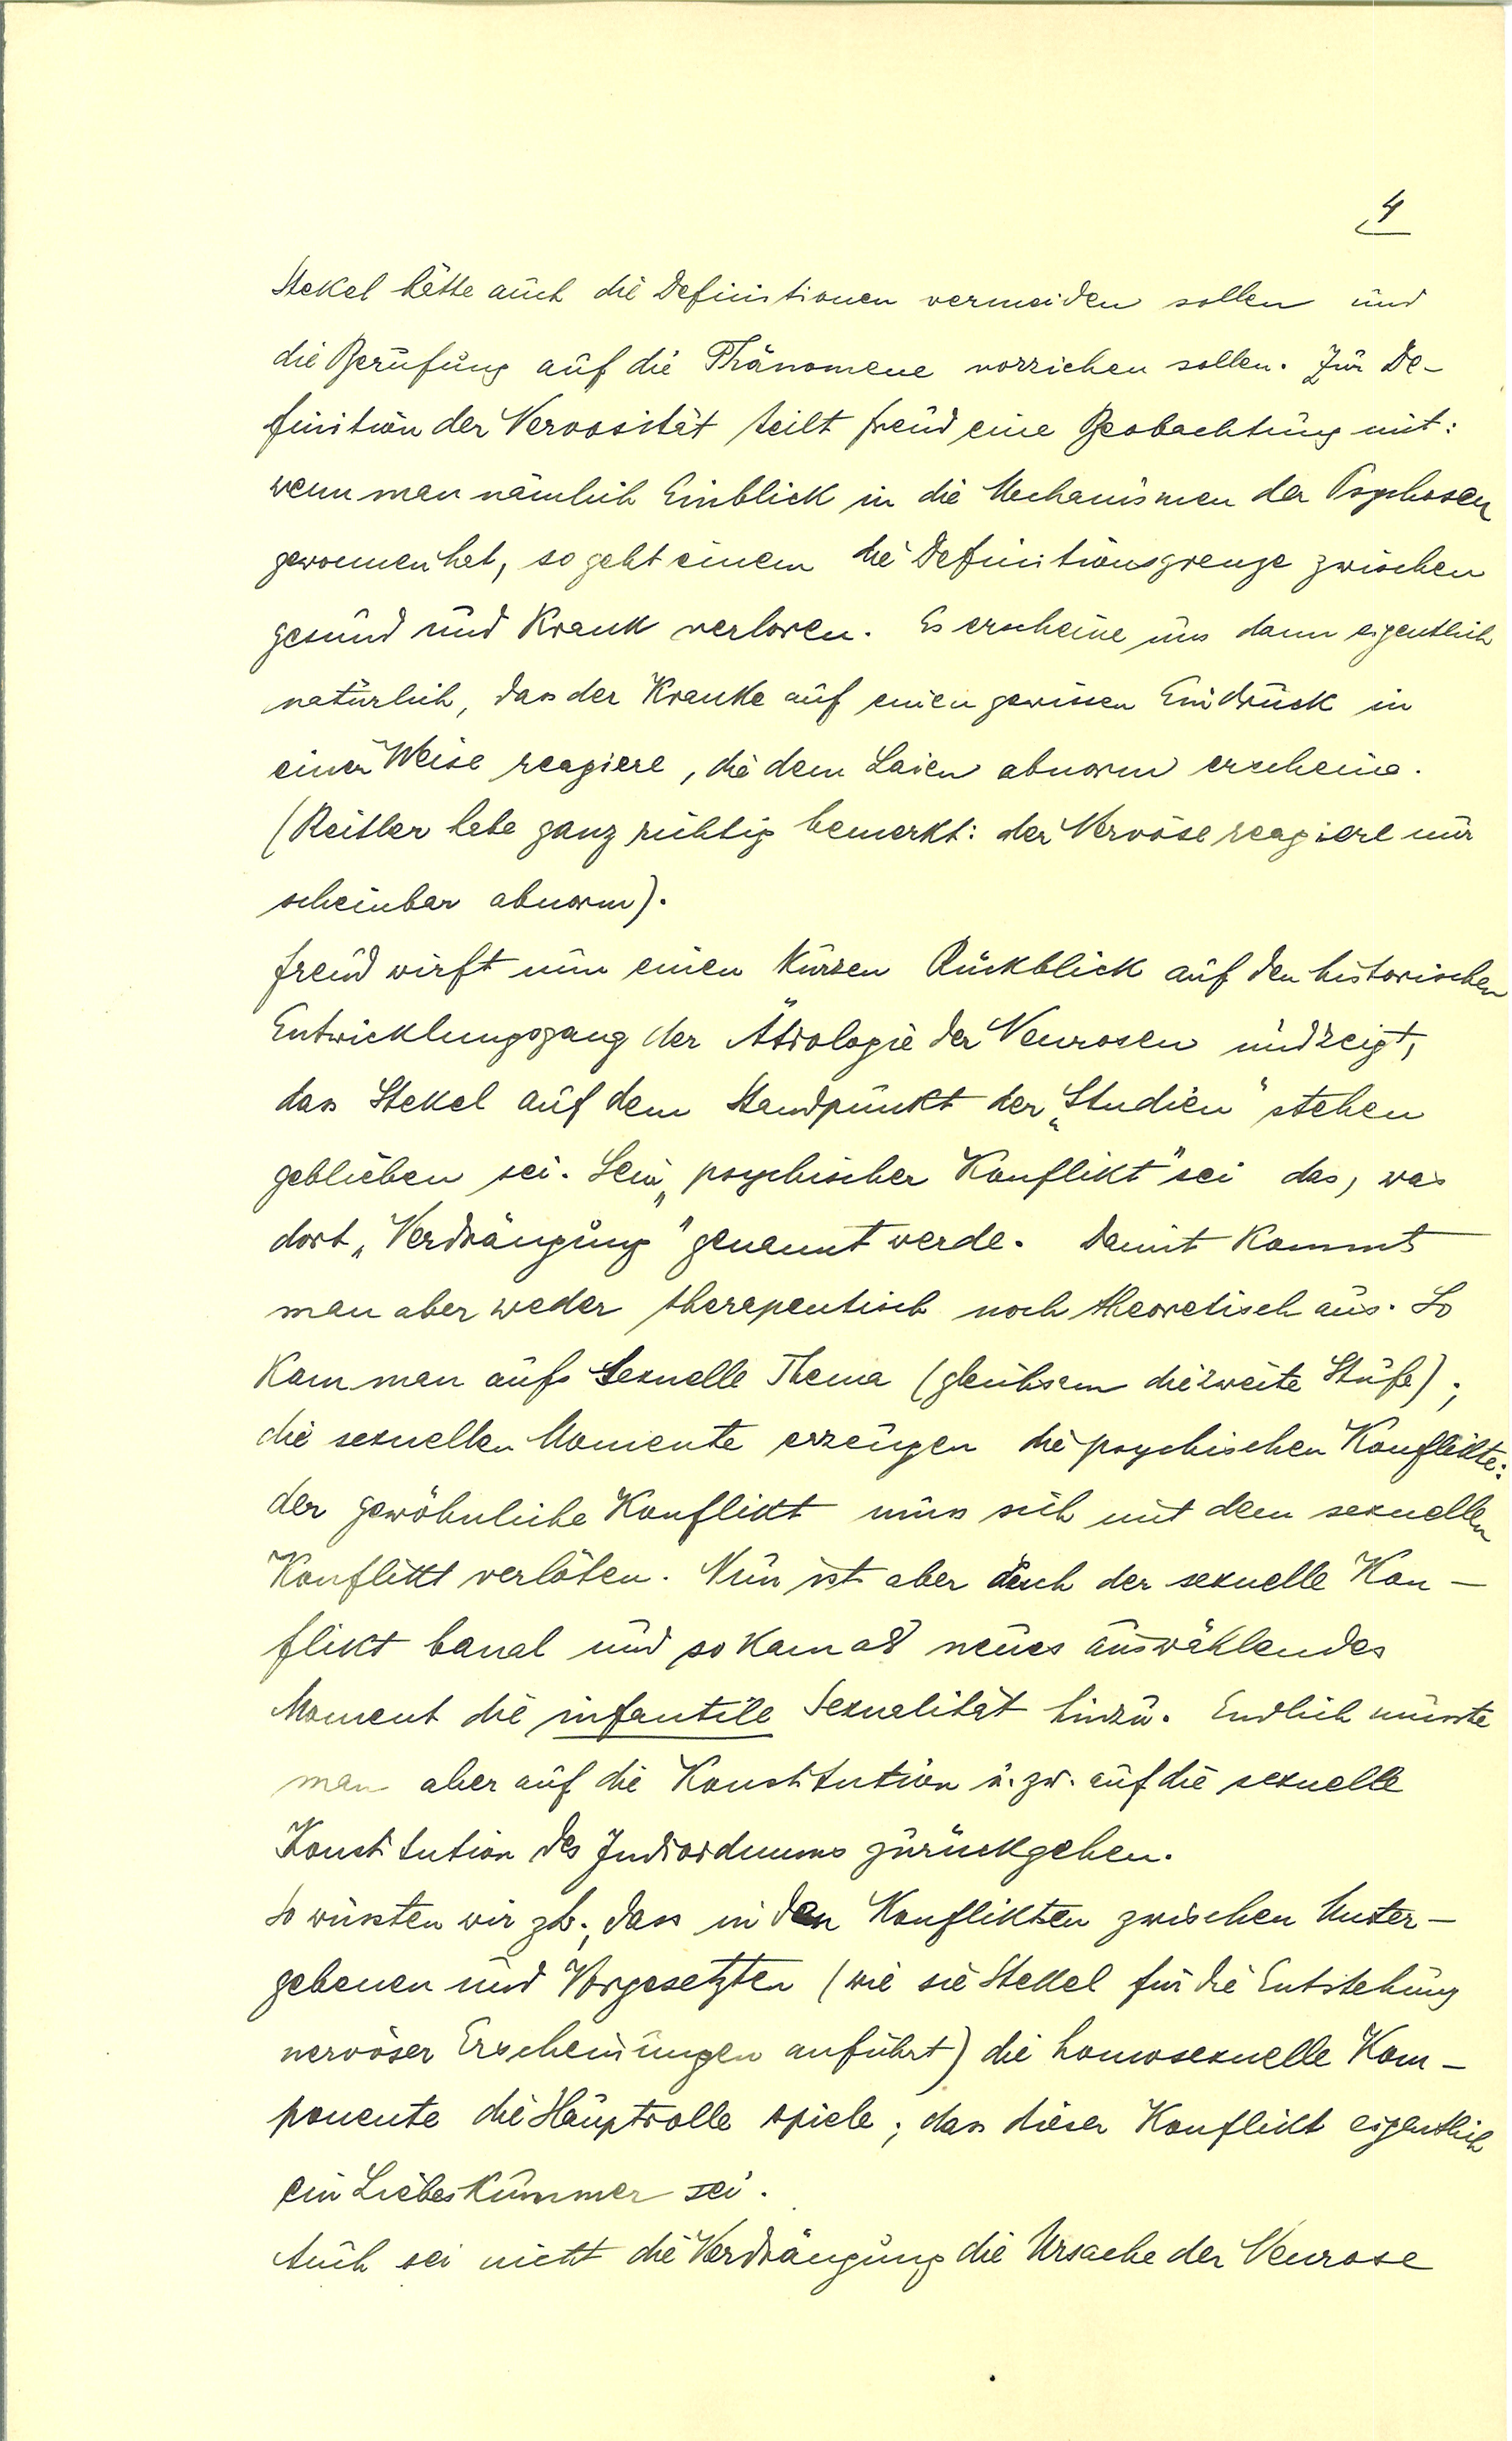 4
Stekel hätte auch die Definitionen vermeiden sollen und
die Berufung auf die Phänomene vorziehen sollen. Zur De-
finition der Nervosität teilt Freud eine Beobachtung mit:
wenn man nämlich Einblick in die Mechanismen der Psychosen
gewonnen hat, so geht einem die Definitionsgrenze zwischen
gesund und krank verloren. Es erscheine uns dann eigentlich
natürlich, dass der Kranke auf einen gewissen Eindruck in
einer Weise reagiere, die dem Laien abnorm erscheine.
(Reitler habe ganz richtig bemerkt: der Nervöse reagiere nur
scheinbar abnorm).
Freud wirft nun einen kurzen Rückblick auf den historischen
Entwicklungsgang der Ätiologie der Neurosen und zeigt,
dass Stekel auf dem Standpunkt der „Studien" stehen
geblieben sei. Sein „psychischer Konflikt" sei das, was
dort „Verdrängung" genannt werde. Damit kommt
man aber weder therapeutisch noch theoretisch aus. So
kam man aufs sexuelle Thema (gleichsam die zweite Stufe);
die sexuellen Momente erzeugen die psychischen Konflikte:
der gewöhnliche Konflikt muss sich mit dem sexuellen
Konflikt verlöten. Nun ist aber auch der sexuelle Kon-
flikt banal und so kam als neues auswählendes
Moment die infantile Sexualität hinzu. Endlich musste
man aber auf die Konstitution u. zw. auf die sexuelle
Konstitution des Individuums zurückgehen.
So wüssten wir zb., dass in den Konflikten zwischen Unter-
gebenen und Vorgesetzten (wie sie Stekel für die Entstehung
nervöser Erscheinungen anführt) die homosexuelle Kom-
ponente die Hauptrolle spiele; dass dieser Konflikt eigentlich
ein Liebeskummer sei.
Auch sei nicht die Verdrängung die Ursache der Neurose